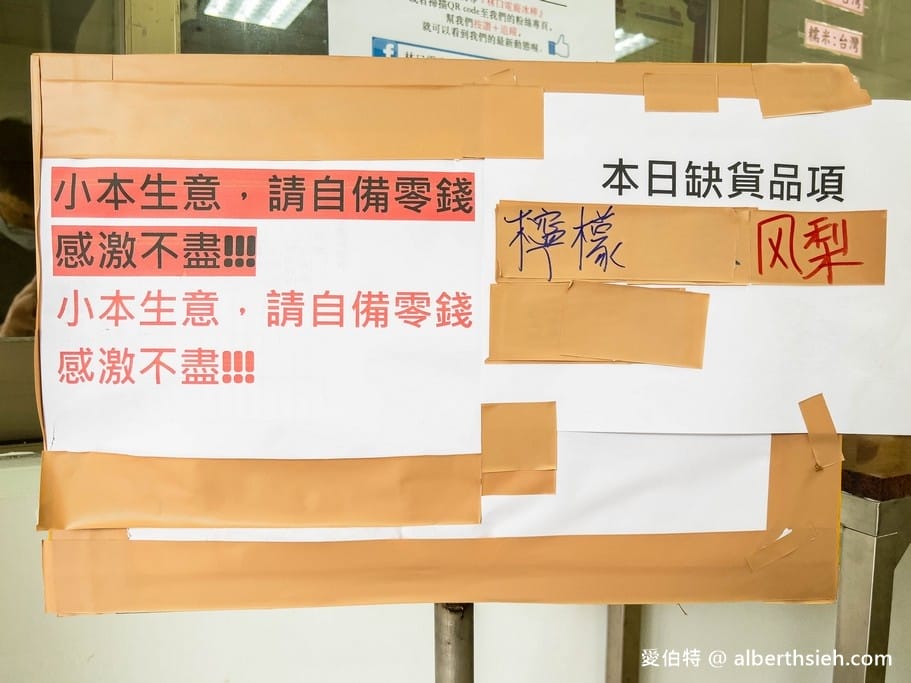 林口電廠冰棒
或者掃描QR code至我們的粉絲專頁,
幫我們按讚+追蹤,
就可以看到我們的最新動態喔。
糯米:台灣
小本生意，請自備零錢
感激不盡!!!
小本生意，請自備零錢
感激不盡!!!
本日缺貨品項
檸檬
风梨
愛伯特 @ alberthsieh.com